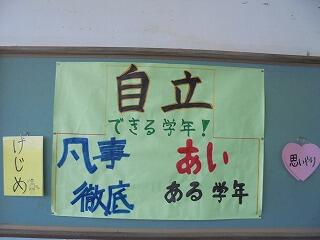 自立
できる学年!
凡事
徹底
あい
ある学年
げじめ
思いやり